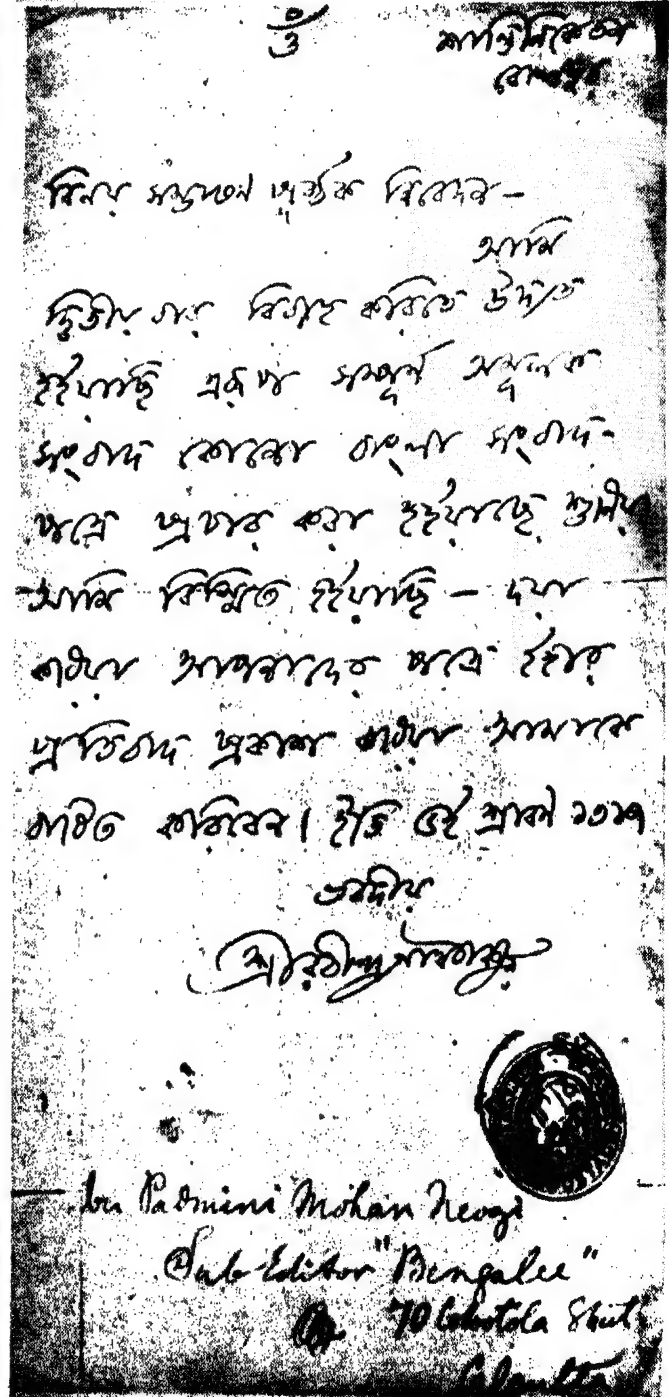 ওঁ
শান্তিনিকেতন
বোলপুর
বিনয় সম্ভাষণ পূর্ব্বক নিবেদন—
আমি
দ্বিতীয় বার বিবাহ করিতে উদ্যত
হইয়াছি এরূপ সম্পূর্ণ অমূলক
সংবাদ কোনো বাংলা সংবাদ-
পত্রে প্রচার করা হইয়াছে শুনিয়া
আমি বিস্মিত হইয়াছি — দয়া
করিয়া আপনাদের পত্রে ইহার
প্রতিবাদ প্রকাশ করিয়া আমাকে
বাধিত করিবেন। ইতি ৬ই শ্রাবণ ১৩১৭
ভবদীয়
শ্রীরবীন্দ্রনাথ ঠাকুর
Padmini Mohan Neogi
Sub-Editor "Bengalee"
70 Colootola Street
Calcutta